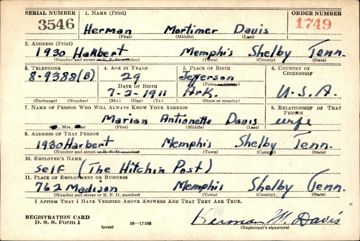 SERIAL NUMBER 1. NAME (Print) ORDER NUMBER
3546 Herman Mortimer Davis 1749
(First) (Middle) (Last)
2. ADDRESS (Print)
1930 Harbert Memphis Shelby Tenn.
(Number and street or R. F. D. number) (Town) (County) (State)
3. TELEPHONE 4. AGE IN YEARS 5. PLACE OF BIRTH 6. COUNTRY OF CITIZENSHIP
8-9388(B) 29 Jefferson
DATE OF BIRTH (Town or county)
7-2-1911 Ark. U.S.A.
(Exchange) (Number) (Mo.) (Day) (Yr.) (State or country)
7. NAME OF PERSON WHO WILL ALWAYS KNOW YOUR ADDRESS 8. RELATIONSHIP OF THAT PERSON
Marian Antionette Davis wife
(First) (Middle) (Last)
9. ADDRESS OF THAT PERSON
1930 Harbert Memphis Shelby Tenn.
(Number and street or R. F. D. number) (Town) (County) (State)
10. EMPLOYER'S NAME
Self (The Hitchin Post)
11. PLACE OF EMPLOYMENT OR BUSINESS
762 Madison Memphis Shelby Tenn.
(Number and street or R. F. D. number) (Town) (County) (State)
I AFFIRM THAT I HAVE VERIFIED ABOVE ANSWERS AND THAT THEY ARE TRUE.
REGISTRATION CARD
D. S. S. Form 1 (over) 16-17105 Herman M. Davis
(Registrant's signature)